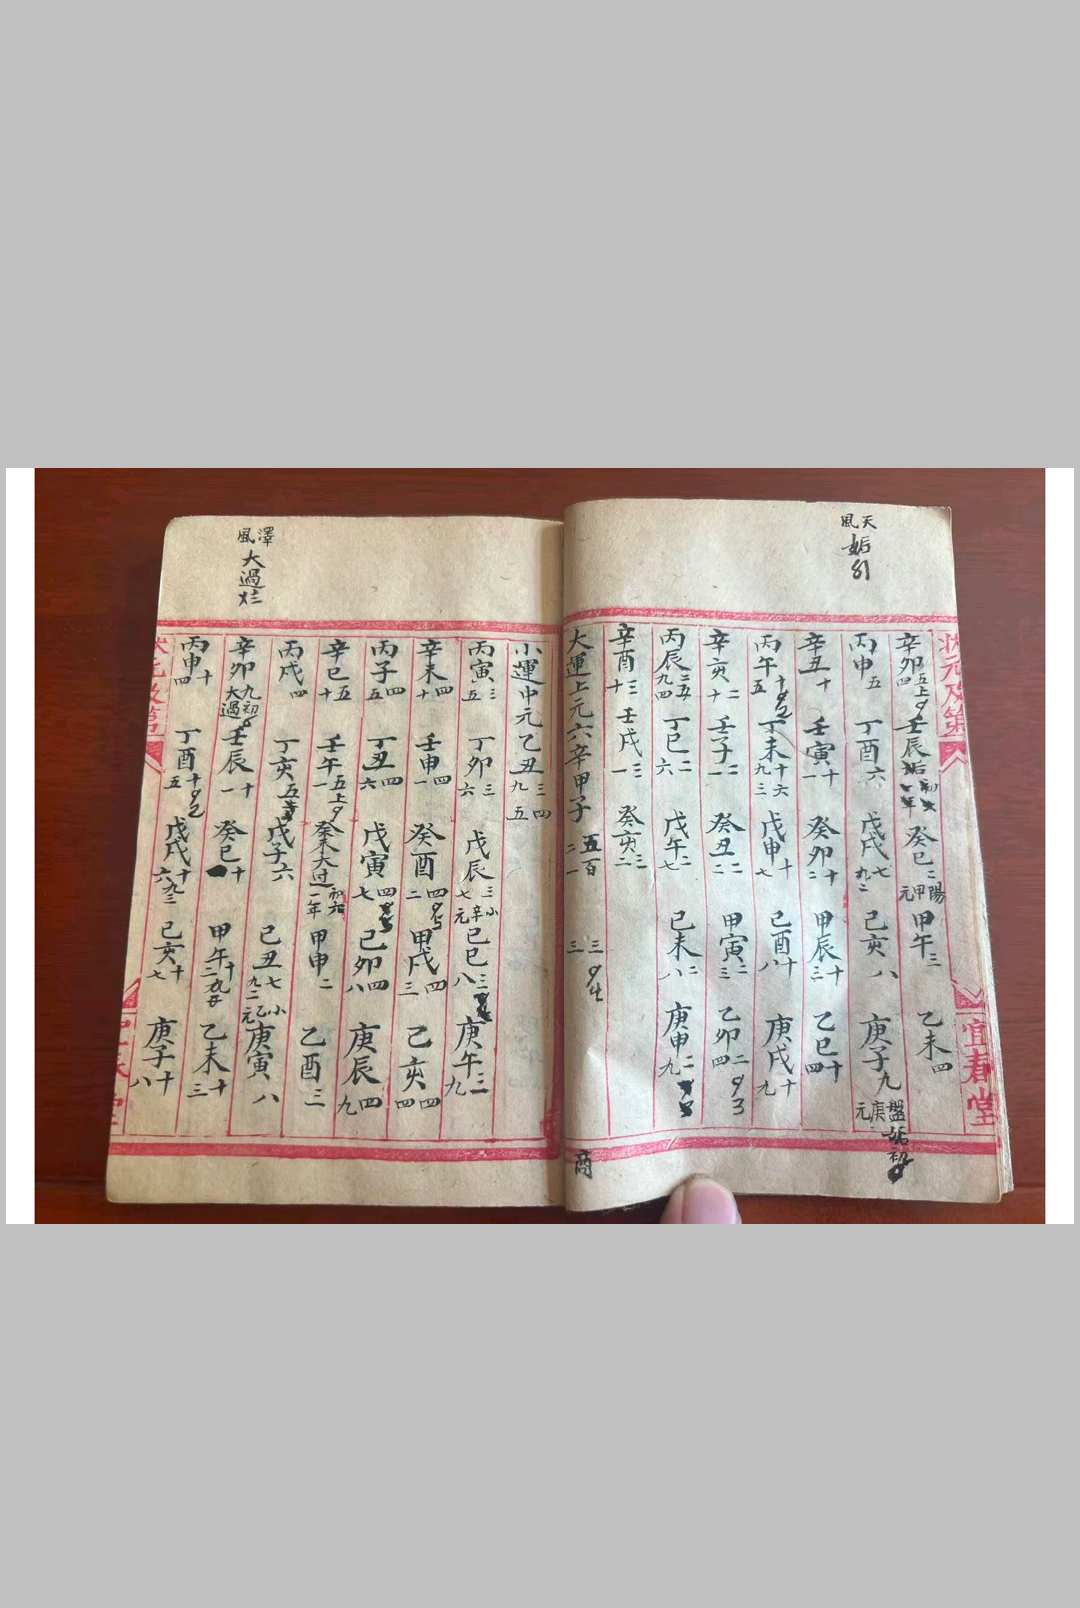 天
風
姤
狀元及第
宜春堂
辛卯 四 五上九 壬辰 癸巳 二 陽甲元 甲午 三 乙未 四
丙申 五 丁酉 六 戊戌 七 九二 己亥 八 庚子 九 盤庚元
辛丑 十 壬寅 十一 癸卯 十二 甲辰 十三 乙巳 十四
丙午 十五 丁未 十六 九三 戊申 十七 己酉 十八 庚戌 十九
辛亥 二十 壬子 二一 癸丑 二二 甲寅 二三 乙卯 二四
丙辰 二五 九四 丁巳 二六 戊午 二七 己未 二八 庚申 二九
辛酉 三十 壬戌 三一 癸亥 三二
大運上元六辛甲子 五百 二一 三三
商
澤
風
大過
小運中元乙丑 三四 九五
丙寅 三五 丁卯 三六 戊辰 三七 小辛元 己巳 三八 庚午 三九
辛未 四十 壬申 四一 癸酉 四二 甲戌 四三 己亥 四四
丙子 四五 丁丑 四六 戊寅 四七 己卯 四八 庚辰 四九
辛巳 五十 壬午 一 五上 癸未 大过 初六 一年 甲申 二 乙酉 三
丙戌 四 丁亥 五 戊子 六 己丑 七 九二 小乙元 庚寅 八
辛卯 九 初 大過 壬辰 十一 癸巳 十 甲午 十二 九五 乙未 十三
丙申 十四 丁酉 十五 戊戌 十六 九三 己亥 十七 庚子 十八
狀元及第